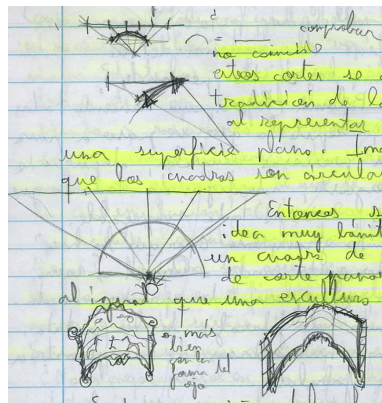 comprobar
no
estos cortes se
tradición de l
al representar
una superficie plano. Ima
que los cuadros son circula
Entonces s
idea muy bánit
un cuadro de
de corte pano
al igual que una escultura
o más
bien
con la
forma del
ojo